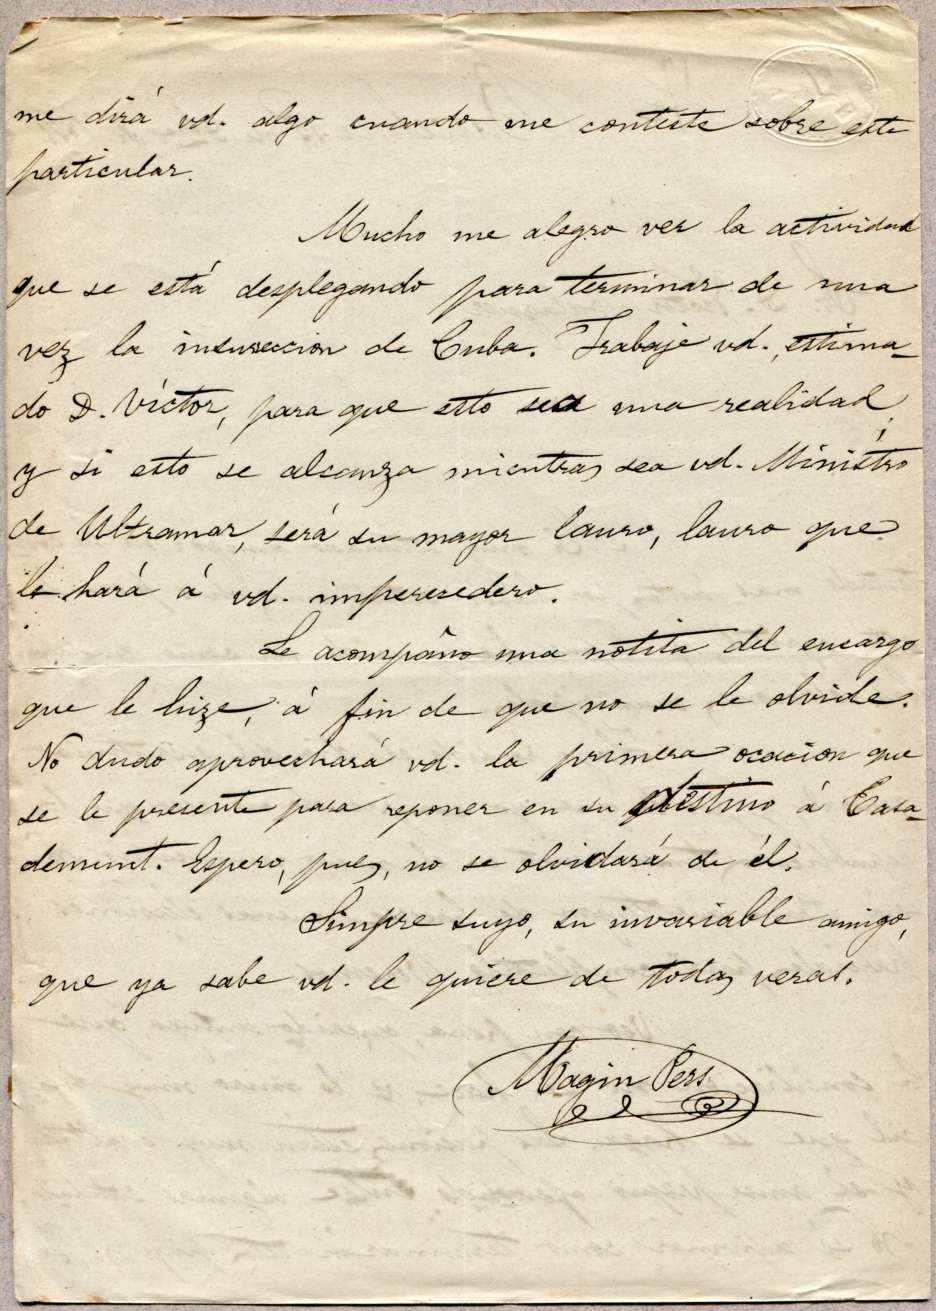 me dirá vd. algo cuando me conteste sobre este
particular.
Mucho me alegro ver la actividad
que se está desplegando para terminar de una
vez la insureccion de Cuba. Trabaje vd., estima-
do D. Víctor, para que esto sea una realidad,
y si esto se alcanza mientras sea vd. Minístro
de Ultramar, será su mayor lauro, lauro que
le hará á vd. imperesedero.
Le acompaño una notita del encargo
que le hize, á fin de que no se le olvide.
No dudo aprovechará vd. la primera ocacion que
se le presente para reponer en su destino á Casa-
demunt. Espero, pues, no se olvidará de él.
Simpre suyo, su invariable amigo,
que ya sabe vd. le quiere de todas veras.
Magin Pers